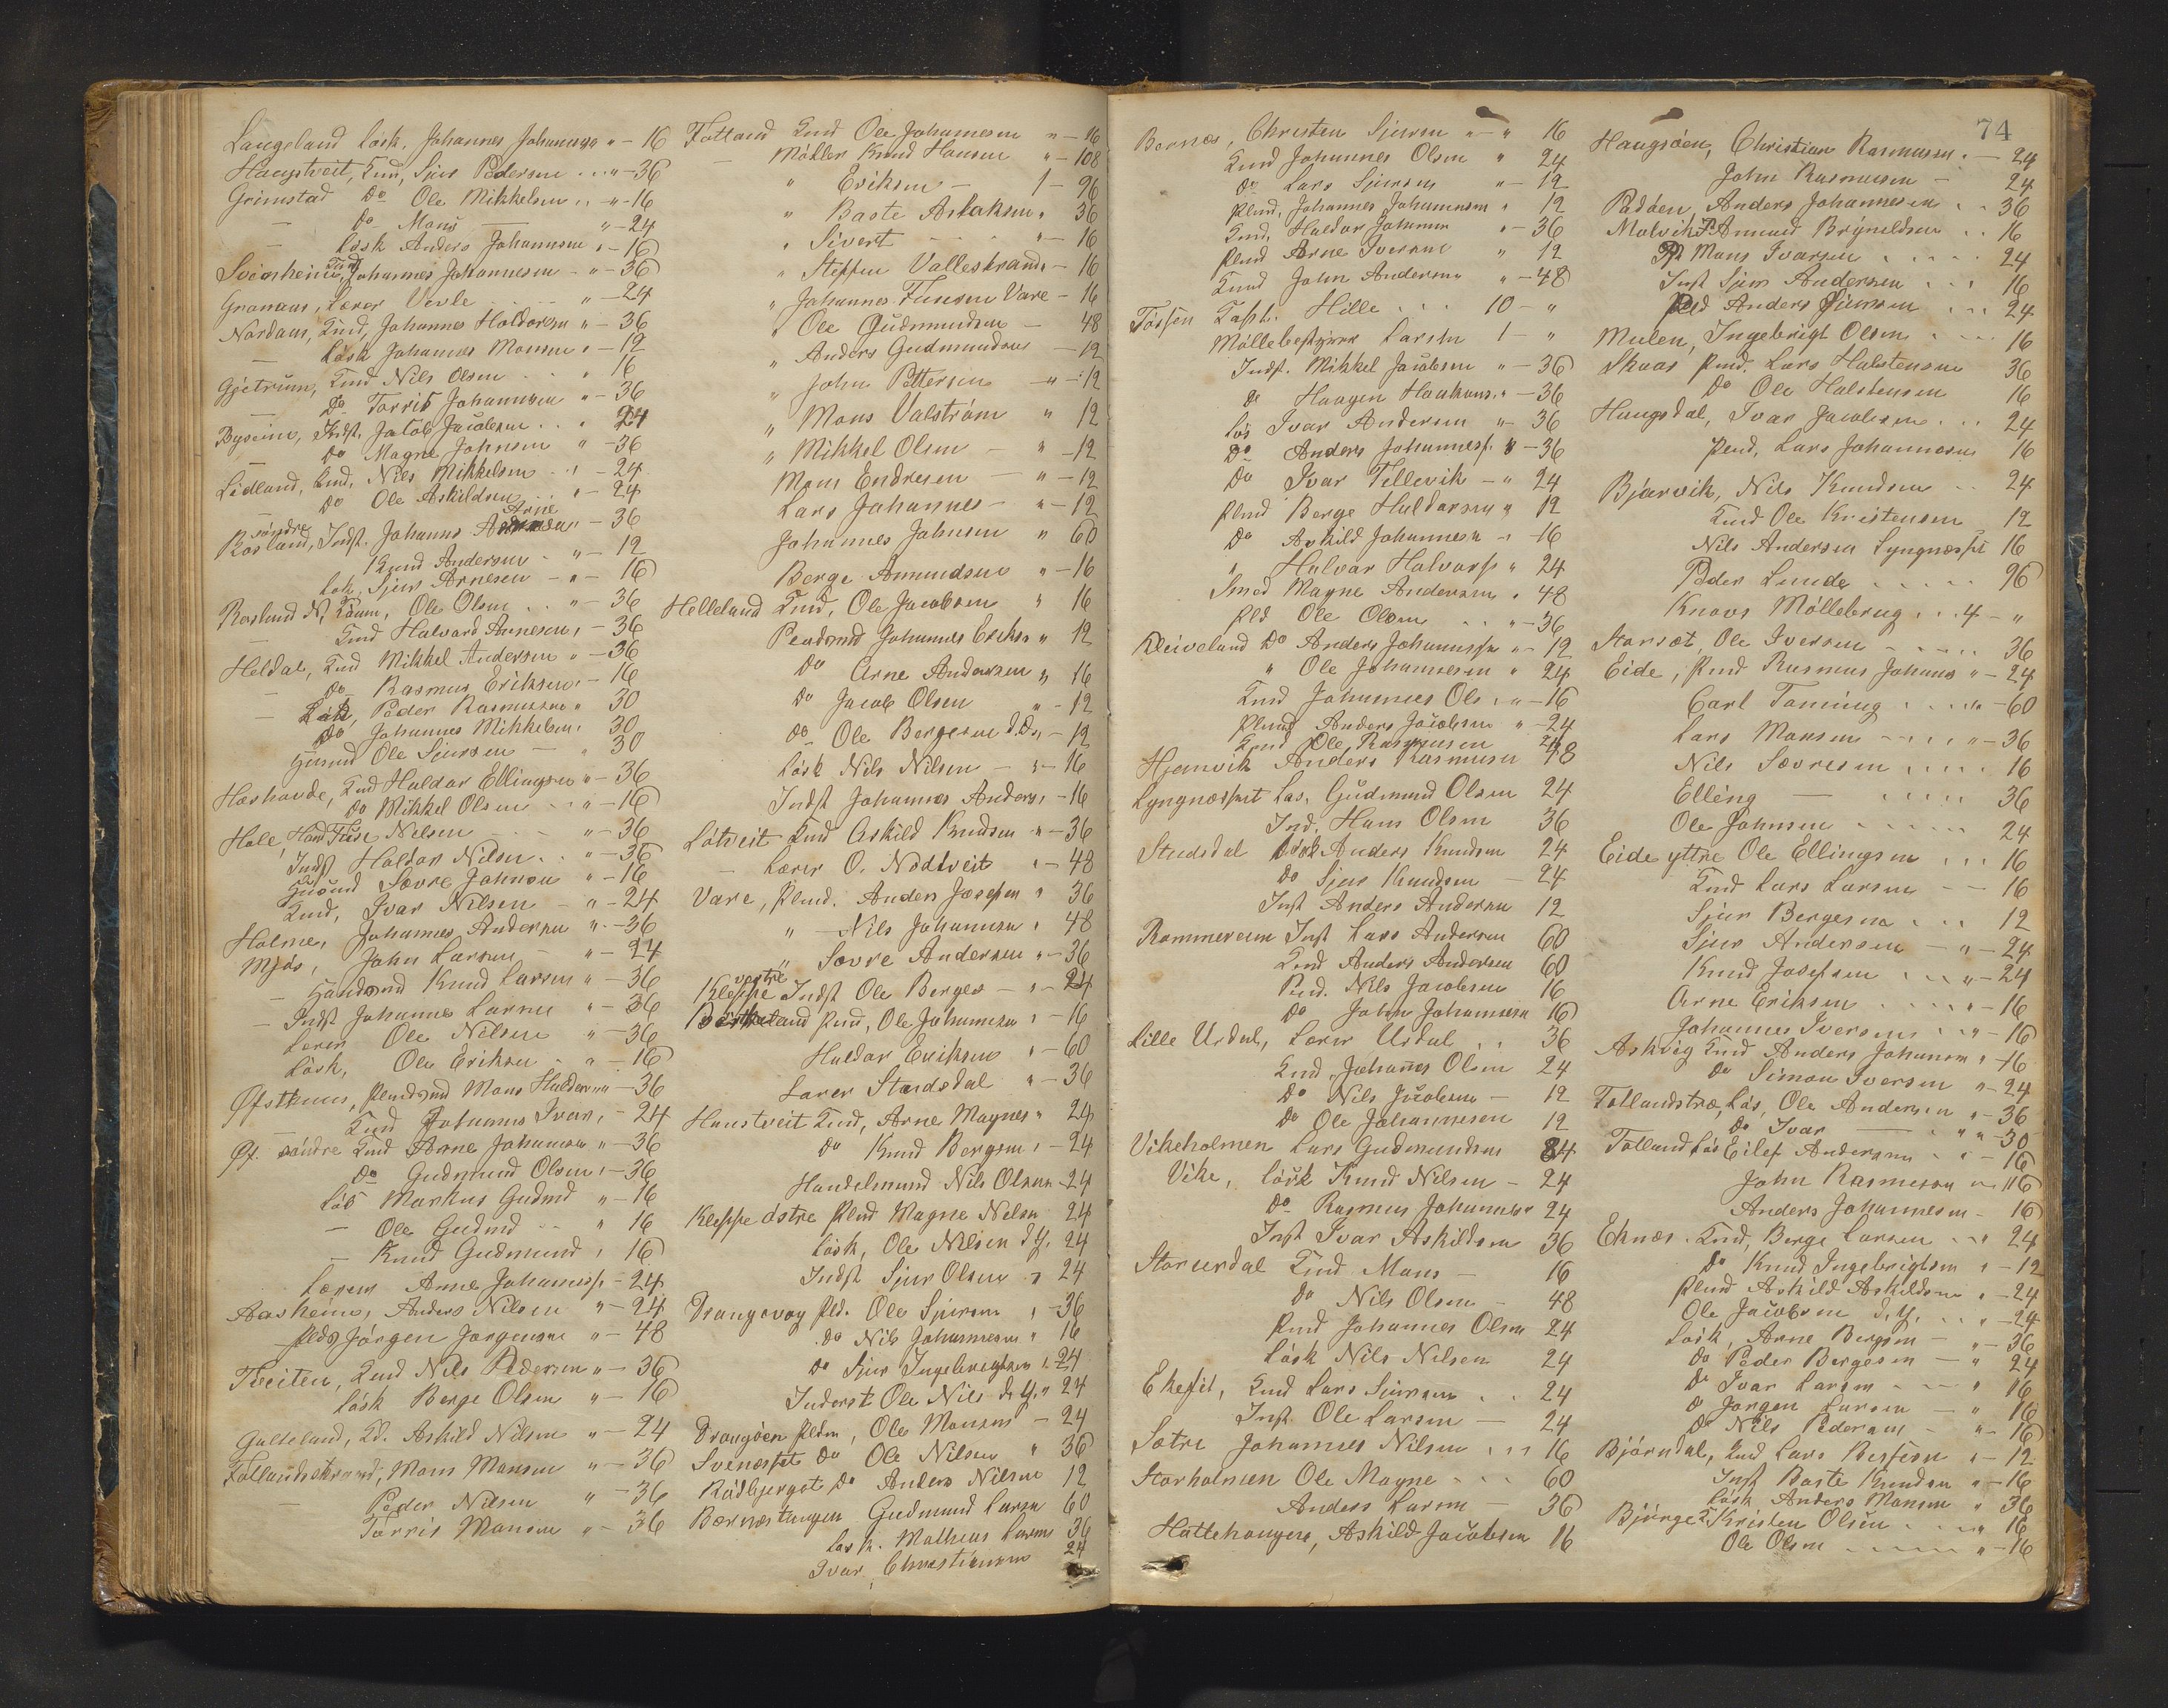 Langeland Løsk. Johannes Johannesen " - 16
Haugstveit, Kmd, Sjur Pedersen " - 36
Grimstad Do Ole Mikkelsen " - 16
- Do Mons — " - 24
- Løsk Anders Johannesen " - 16
Svenheim, Johannes Johannesen - " - 36
Granaas, Lærer Vevle " - 24
Nordaas, Kmd, Johannes Haldorsen " - 36
- Løsk Johannes Monsen " - 12
Gjetrum, Kmd Nils Olsen " 16
- Do Torris Johannesen " - 36
Byseim, Indst. Jakob Jacobsen " 24
- Do Magne Johnsen " - 36
Lidland, Kmd, Nils Mikkelsen " - 24
Do Ole Askildsen " - 24
Røsland søndre, Indst. Johannes Arne - 36
Kmd Andersen " - 12
Løk. Sjur Arnesen - " - 16
Røsland N, Ole Olsen " - 36
- Kmd Halvard Arnesen " - 36
Heldal, Kmd Mikkel Andersen " - 36
- Do Rasmus Eriksen " - 16
- Løsk, Peder Rasmussen " 30
Do Johannes Mikkelsen " 30
Husmd Ole Sjursen — " 30
Hashovde, Kmd Haldor Ellingsen " - 36
Do Mikkel Olsen " - 16
Hole, Nilsen " - 36
Indst Haldor Nilsen " - 36
Husmd Sævre Johnsen " - 16
Kmd, Ivar Nilsen - " - 24
Holme, Johannes Andersen " - 36
Mjøs, John Larsen - " - 24
- Handsmd Knud Larsen " - 36
- Indst Johannes Larsen " - 36
Lærer Ole Nilsen " - 36
Løsk, Ole Eriksen " - 16
Øfsthus, Plmdsmd Mons Haldorsen " - 36
- Kmd Johannes Ivars " - 24
Øf. søndre Kmd Arne Johannesen " - 36
Do Gudmund Olsen " - 36
Løs Markus Gudmd " - 16
- Ole Gudmd " 16
- Knud Gudmund " 16
Lærer Arne Johanness. - 24
Aasheim, Anders Nilsen " - 24
Plds Jørgen Jørgensen " - 48
Tveiten, Kmd Nils Pedersen " - 36
Løsk Berge Olsen " - 16
Gulleland, Kd. Askild Nilsen " - 24
Tollandsstrand, Mons Monsen " - 36
- Peder Nilsen " - 36
Torris Monsen " - 36
Totland Kmd Ole Johannesen " - 16
- Møller Knud Hansen " - 108
" Eriksen - 1 - 96
" Baste Aslaksen " 36
" Sivert " - 16
" Steffen Vallestrand " - 16
" Johannes Tunesen Vare - 16
" Ole Gudmundsen — 48
" Anders Gudmundsen - 12
" John Pettersen - " - 12
" Mons Valstrøm " 12
" Mikkel Olsen — " - 12
Mons Endresen - " - 12
Lars Johannes - " - 12
Johannes Johnsen " 60
Berge Amundsen " - 16
Helleland Kmd, Ole Jacobsen " 16
Plmdsmd Johannes Eriks " 12
Do Arne Andersen " 16
Do Jacob Olsen " - 12
Do Ole Bergesen d.E. " - 12
Løsk Nils Nilsen - " - 16
Indst Johannes Anders " - 16
Løtveit Kmd Askild Knudsen " - 36
- Lærer O. Nødtveit " - 48
Vare, Plmd. Anders Josefsen " 36
" - Nils Johannesen " 48
" Sævre Andersen " - 36
Kleppe vestre Indst Ole Berges - " - 24
Plmd, Ole Johannesen " - 16
Haldor Eriksen " - 60
Lærer Stadsdal " - 36
Haustveit Kmd, Arne Magnes " 24
Do Knud Bergsen " - 24
Handelsmand Nils Olsen - 24
Kleppe østre Plmd Magne Nilsen 24
Løsk, Ole Nilsen d.Y. 24
Indst Sjur Olsen " 24
Drangsvog Pld. Ole Sjursen " - 36
Do Nils Johannesen " 16
Do Sjur Ingebrigtsen " 24
Inderst Ole Nils d.Y. " 24
Drangøen Pldm, Ole Monsen - 24
Svinæsset Do Ole Nilsen " 36
Rødbjerget Do Anders Nilsen 12
Bærnæstangen Gudmund Larsen 60
Løsk. Mathias Larsen 36
Ivar Christiansen 24
Bernæs, Christen Sjursen " - " 16
Kmd Johannes Olsen " 24
Do Lars Sjursen " - 12
Plmd, Johannes Johannesen " 12
Kmd, Haldor Johannes " - 36
Plmd Arne Iversen " 12
Kmd John Andersen " - 48
Fossen Capt. Hille 10 - "
Møllebestyrer Larsen 1 - "
Indst. Mikkel Jacobsen " - 36
Do Haagen Haakons. " - 36
Løs Ivar Andersen " - 36
Do Anders Johanness. " - 36
Do Ivar Tellevik - " 24
Plmd Berge Haldorsen " 12
Do Askild Johannesen - 16
" Halvar Halvors. " 24
Smed Magne Andersen " 48
Pld Ole Olsen " - 36
Kleiveland Do Anders Johannesen " - 12
" Ole Johannesen " 24
Kmd Johannes Ols " - 16
Plmd Anders Jacobsen " - 24
Kmd Ole Rasmussen 24
Hjemvik Anders Rasmusen 48
Lyngnæsset Løs. Gudmund Olsen 24
Ind. Hans Olsen 36
Studsdal Løsk Anders Knudsen 24
Do Sjur Knudsen — 24
Inst Anders Andersen 12
Rommereim Inst Lars Andersen 60
Kmd Anders Andersen 60
Pmd. Nils Jacobsen 16
Do John Johannesen 16
Lille Urdal, Lærer Urdal " 36
Kmd, Johannes Olsen 24
Do Nils Jacobsen - 12
Do Ole Johannesen 12
Vikeholmen Lars Gudmundsen 84
Vike, Løsk Knud Nilsen - 24
Do Rasmus Johannesen 24
Inst Ivar Askildsen 36
Storurdal Kmd Mons — 16
Do Nils Olsen - 48
Pmd Johannes Olsen 24
Løsk Nils Nilsen 24
Ekefit, Kmd Lars Sjursen 24
Inst Ole Larsen — 24
Sætre Johannes Nilsen 16
Storholmen Ole Magne 60
Anders Larsen — 36
Hattehaugen, Askild Jacobsen 16
74
Haugsøen, Christian Rasmussen " - 24
John Rasmusen - 24
Padøen, Anders Johannesen 36
Molvik P. Amund Brynildsen 16
Pl Mons Ivarsen 24
Inst Sjur Andersen 16
Pld Anders Sjursen 24
Mulen, Ingebrigt Olsen 16
Skaar Pmd. Lars Halstensen 36
Do Ole Halstensen 16
Haugsdal, Ivar Jacobsen 24
Pmd, Lars Johannesen 16
Bjørvik, Nils Knudsen 24
Kmd Ole Kristensen 12
Nils Andersen Lyngnæsset 16
Peder Lunde 96
Knavs Møllebrug 4 - "
Storsæt, Ole Iversen 36
Eide, Pmd Rasmus Johans " - 24
Carl Taning " - 60
Lars Monsen " - 36
Nils Sævresen 16
Elling — 36
Ole Johnsen 24
Eide yttre Ole Ellingsen 16
Kmd Lars Larsen - - 16
Sjur Bergesen 12
Sjur Andersen - " - 24
Knud Josefsen " - 24
Arne Eriksen " - 16
Johannes Iversen " - 16
Askvig Kmd Anders Johansen " - 16
Do Simon Iversen " - 24
Tollandstræ, Løs, Ole Andersen " - 36
Do Ivar — " " - 30
Tolland Løs Eilef Andersen " - 16
John Rasmusen " - 16
Anders Johannesen - 16
Eknæs. Kmd, Berge Larsen " 24
Do Knud Ingebrigtsen " - 12
Plmd Askild Askildsen " - 24
Ole Jacobsen d.Y. " - 24
Løsk, Arne Bergsen - " - 36
Do Peder Bergesen - " 24
Do Ivar Larsen " 16
Do Jørgen Larsen - " 16
Do Nils Pedersen - " - 16
Bjørndal, Kmd Lars Bessesen " - 12
Inst Baste Knudsen " - 16
Løsk Anders Monsen " 36
Bjørge Kristen Olsen " 16
Ole Olsen " - 16